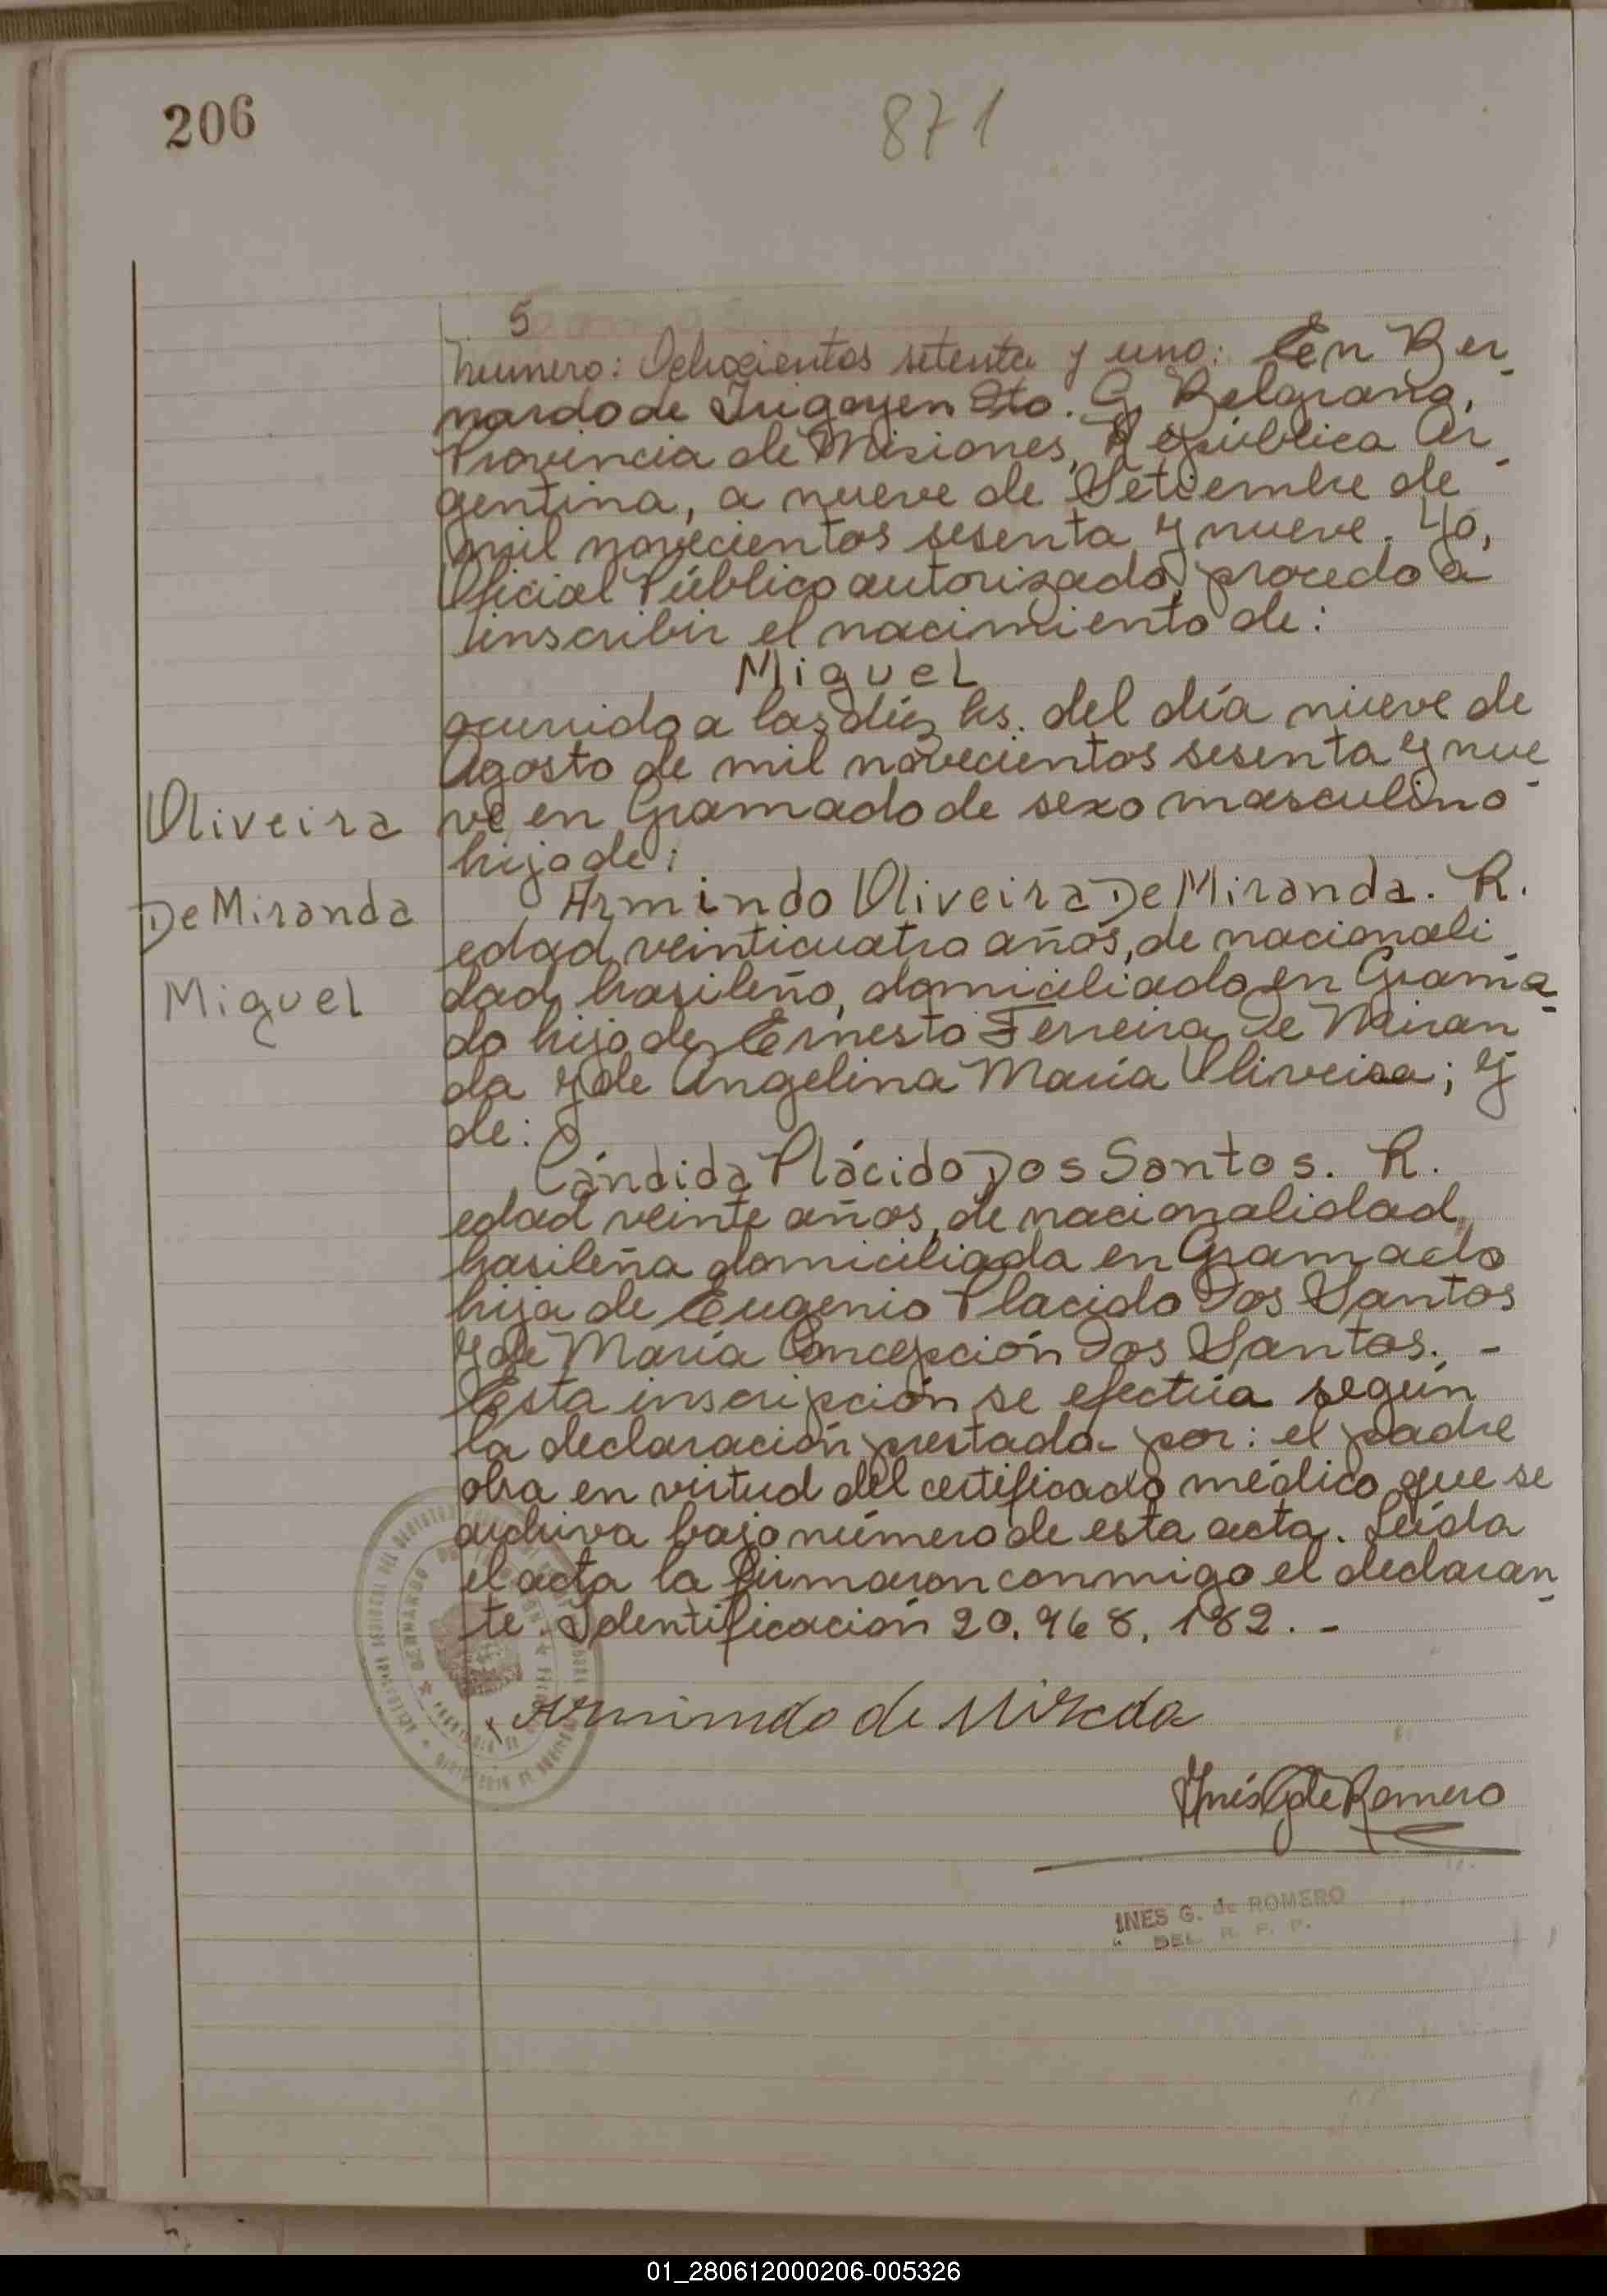 206
871
5
Numero: Ochocientos setenta y uno: En Ber-
nardo de Irigoyen Dto. G. Belgrano,
Provincia de Misiones, República Ar-
gentina, a nueve de Setiembre de
mil novecientos sesenta y nueve. Yo,
Oficial Público autorizado, procedo a
inscribir el nacimiento de:
Miguel
ocurrido a las diéz hs. del día nueve de
Agosto de mil novecientos sesenta y nue-
ve en Gramado de sexo masculino
hijo de:
Oliveira
De Miranda
Miguel
Armindo Oliveira De Miranda. R.
edad veinticuatro años, de nacionali-
dad brasileño, domiciliado en Grama-
do hijo de Ernesto Ferreira De Miran-
da y de Angelina María Oliveira; y
de:
Cándida Plácido Dos Santos. R.
edad veinte años, de nacionalidad
brasileña domiciliada en Gramado
hija de Eugenio Placido Dos Santos
y de María Concepción Dos Santos. -
Esta inscripción se efectúa según
la declaración prestada por: el padre
obra en virtud del certificado médico que se
archiva bajo número de esta acta. Leída
el acta la firmaron conmigo el declaran-
te. Identificación 20.968.182. -
Armimdo de Mirada
Inés G de Romero
INES G. de ROMERO
DEL. R. P. P.
01_280612000206-005326